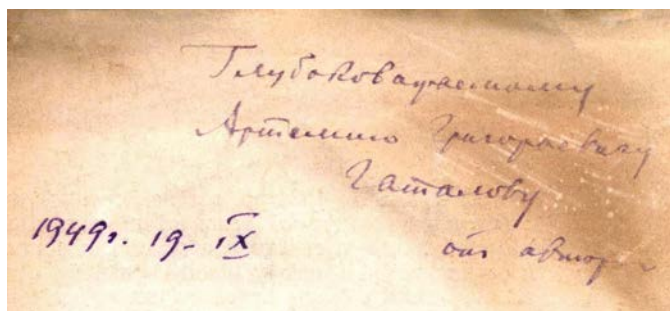 Глубокоуважаемому
Артемию Григорьевичу
Гаталову
1949г. 19-IX
от автора